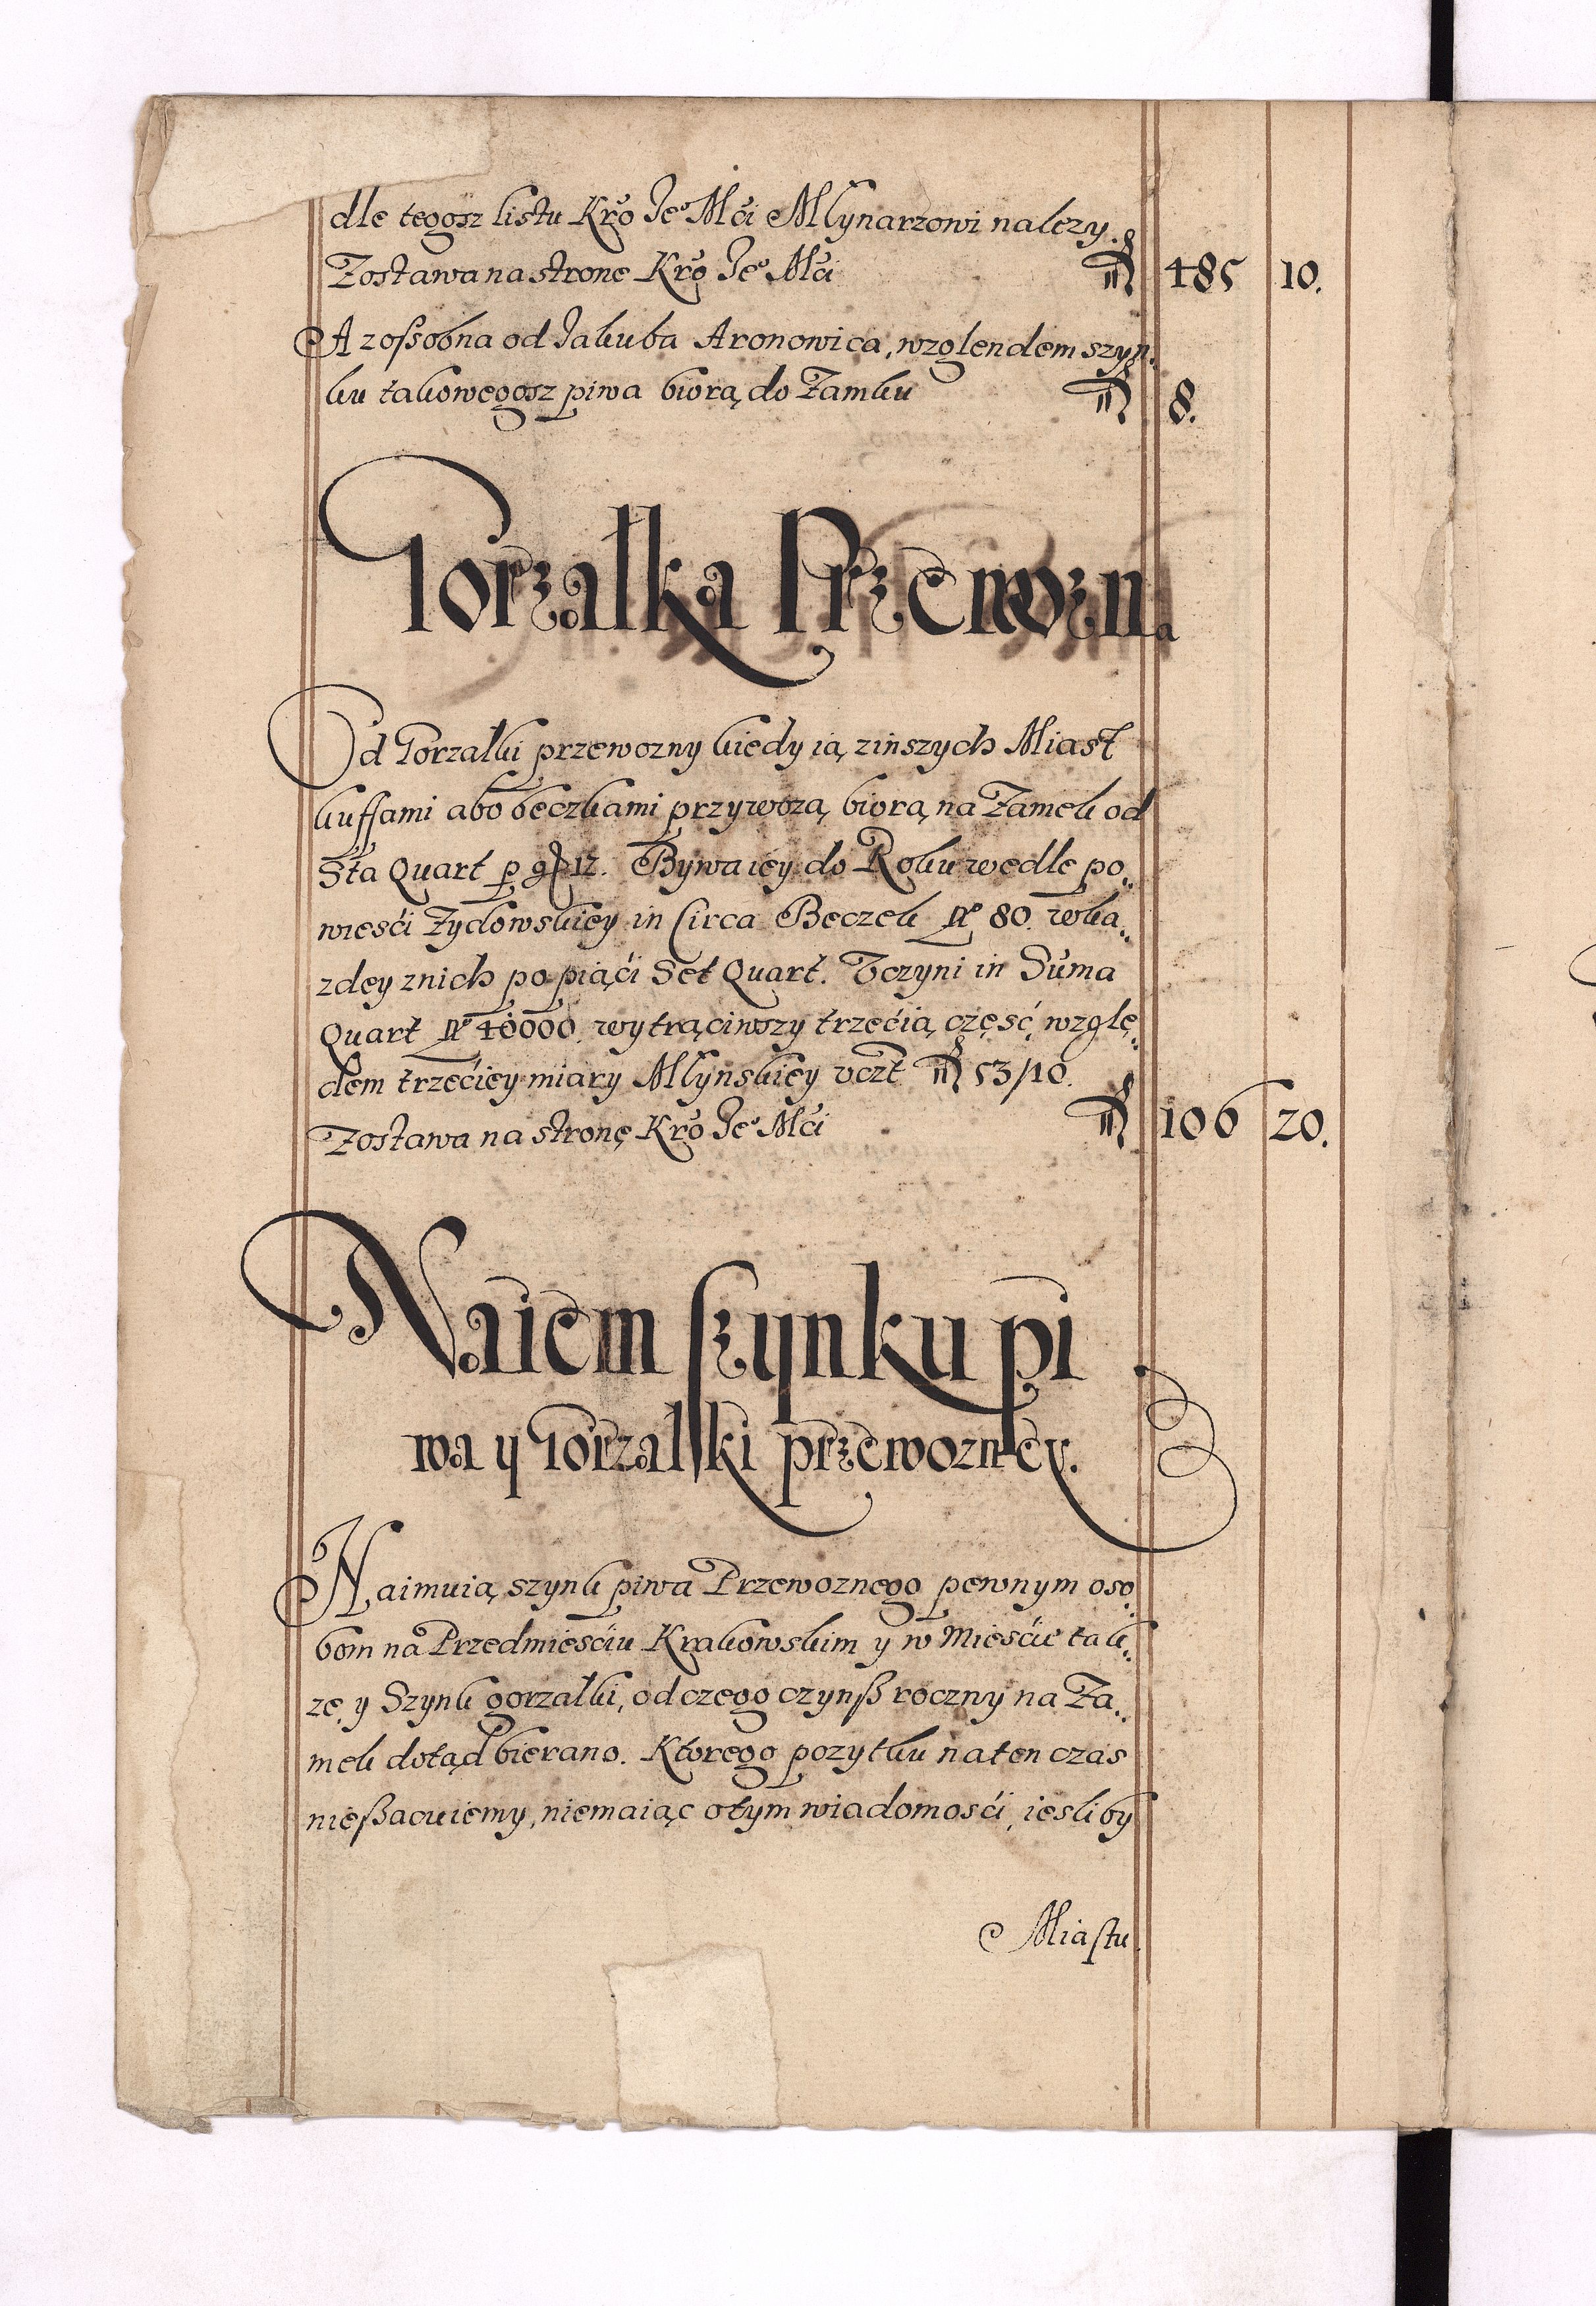 dle tegosz listu Kro̅ Je° Mći Młynarzowi nalezy.
Zostawa na strone Kro̅ Je° Mći fl 485 10.
A zoßobna od Jakuba Aronowica, wzglendem szyn:
ku takowegosz piwa biorą do Zamku fl 8.
Gorzałka Przewozna
Od Gorzałki przewozny kiedy ią zinszych Miast
kuffami abo beczkami przywozą, biorą na Zamek od
Sta Quart p gr 12. Bywa iey do Roku wedle po:
wieści Zydowskiey in Circa Beczek No 80. wka:
zdey znich po piąći Set Quart. Vczyni in Suma
Quart No 40000. wytrąciwszy trzećią część wzglę:
dem trzećiey miary Młynskiey vczt fl 53/10.
Zostawa na stronę Kro̅ Je° Mći fl 106 20.
Naiem szynku pi
wa y Gorzałki przewozney.
Naimuią szynk piwa Przewoznego pewnym oso:
bom na Przedmieśćiu Krakowskim y w Mieśćie tak:
ze y Szynk gorzałki, od czego czynß roczny na Za:
mek dotąd bierano. Ktorego pozytku na ten czas
nießacuiemy, niemaiąc o tym wiadomośći, iesliby
Miastu